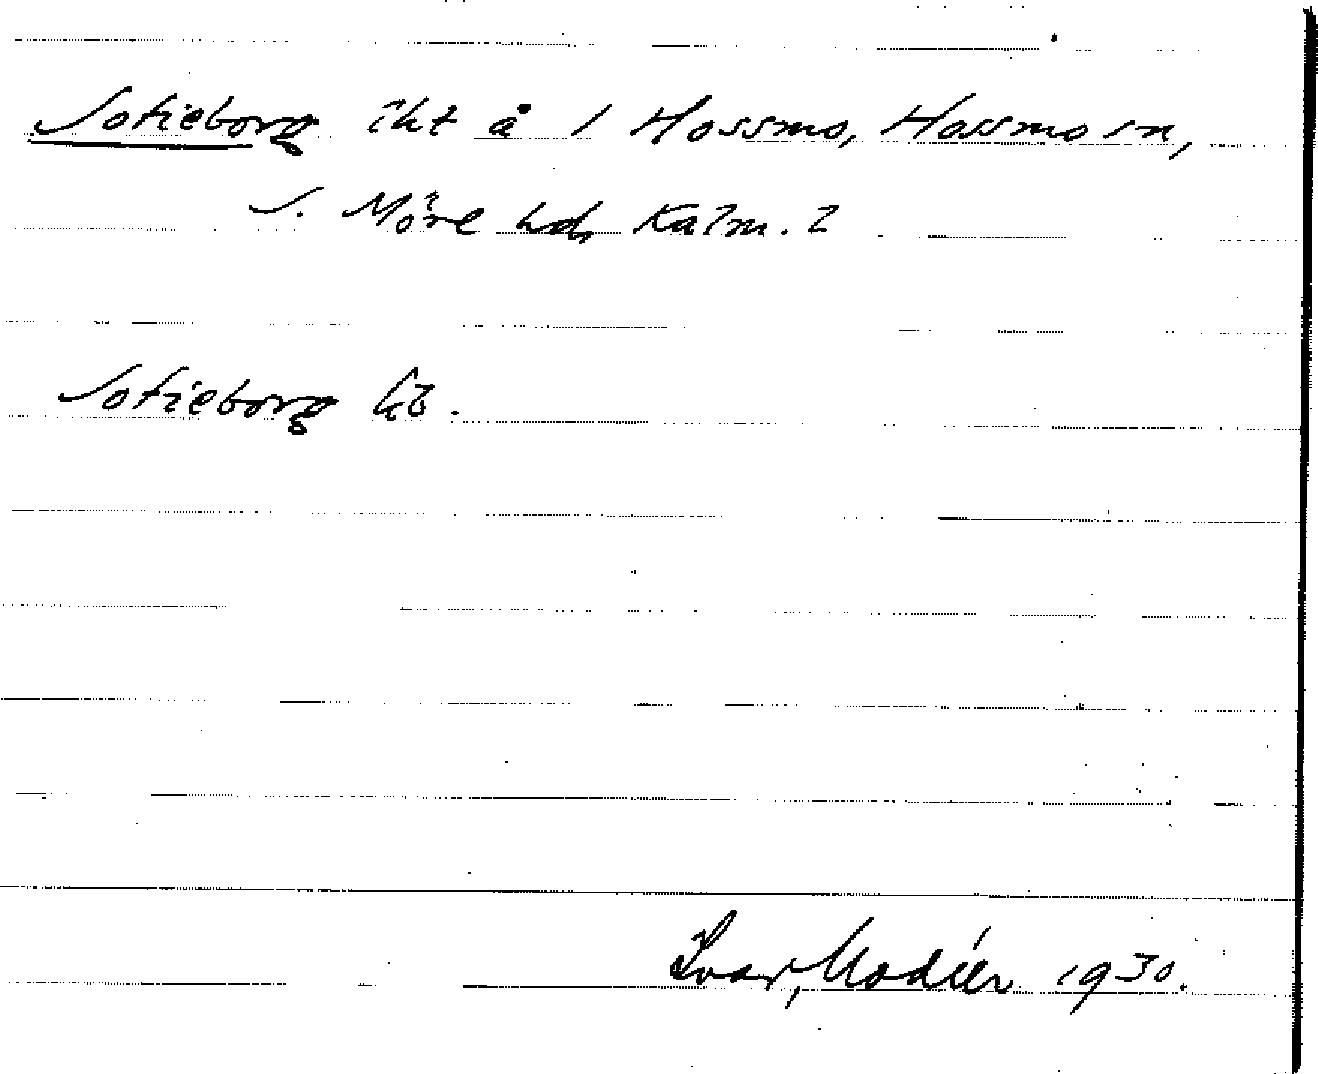 Sofieborg lht å 1 Hossmo, Hossmo sn,
S. Möre hd, Kalm. l
Sofieborg kb.
Ivar Modéer 1930.